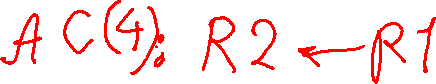 AC(4): R2 ← R1